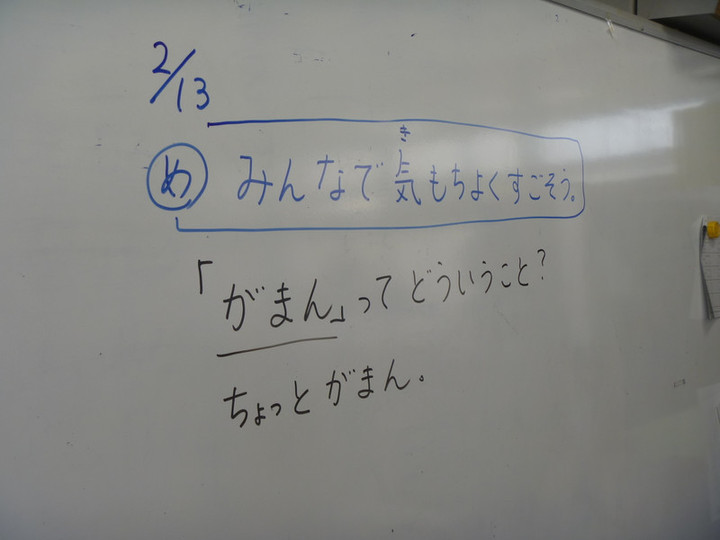 2/13
め みんなで気もちよくすごそう。
き
「がまん」ってどういうこと?
ちょっとがまん。